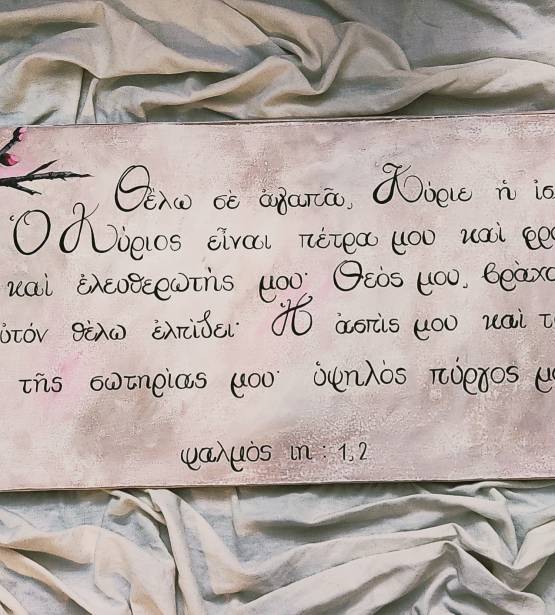 Θέλω σὲ ἀγαπᾶ, Κύριε ἡ ἰσ
Ὁ Κύριος εἶναι πέτρα μου καὶ φρο
καὶ ἐλευθερωτὴς μου· Θεὸς μου, βράχο
ὐτόν θέλω ἐλπίζει· Ἡ ἀσπὶς μου καὶ τ
τῆς σωτηρὶας μου· ὑψηλὸς πύργος μο
ψαλμὸς ιη : 1,2